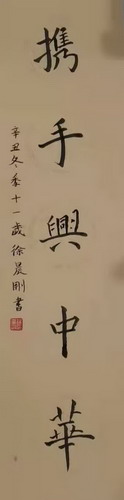 携手興中華
辛丑冬季十一歲徐晨剛書